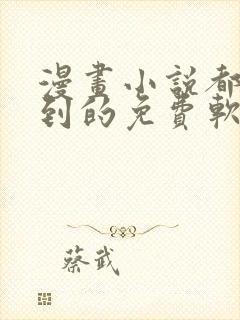 漫畫小說都
到的免費軟
蔡武